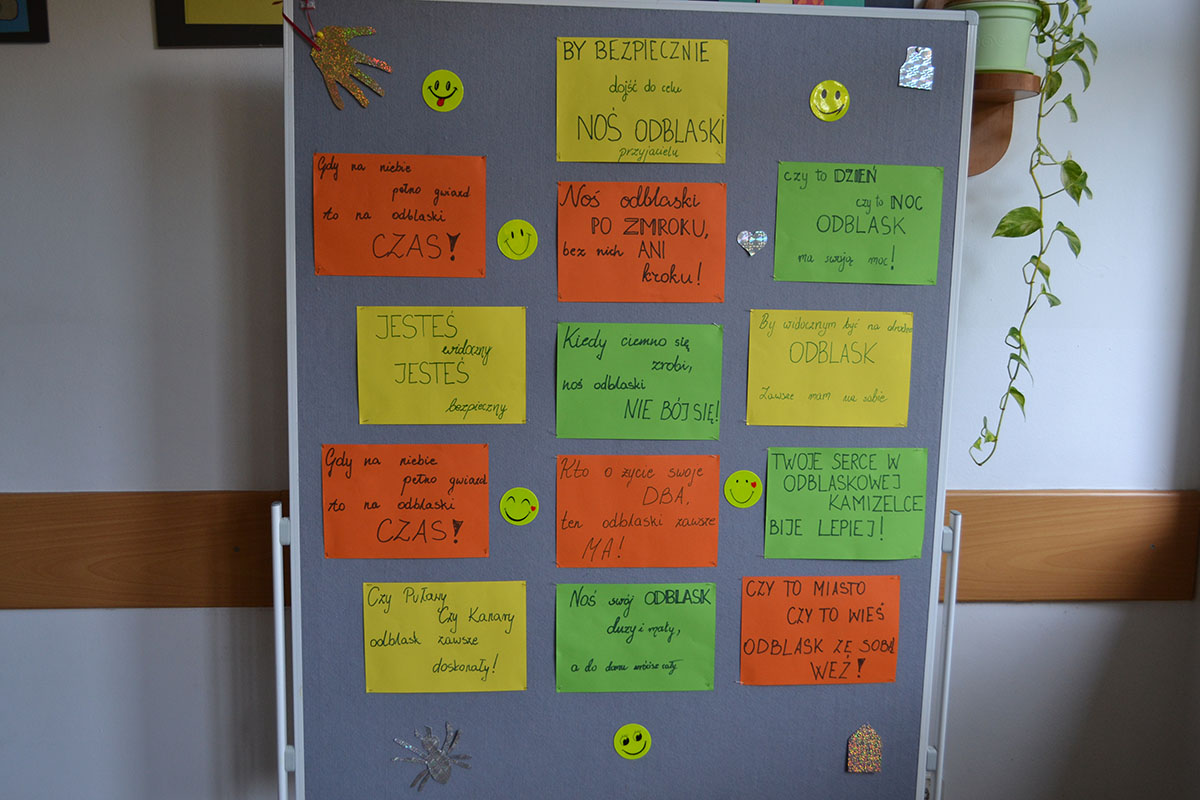 BY BEZPIECZNIE
dojść do celu
NOŚ ODBLASKI
przyjacielu
Gdy na niebie
pełno gwiazd
to na odblaski
CZAS!
Noś odblaski
PO ZMROKU,
bez nich ANI
kroku!
czy to DZIEŃ
czy to NOC
ODBLASK
ma swoją moc!
JESTEŚ
widoczny
JESTEŚ
bezpieczny
Kiedy ciemno się
zrobi,
noś odblaski
NIE BÓJ SIĘ!
By widocznym być na drodze
ODBLASK
Zawsze mam na sobie
Gdy na niebie
pełno gwiazd
to na odblaski
CZAS!
Kto o życie swoje
DBA,
ten odblaski zawsze
MA!
TWOJE SERCE W
ODBLASKOWEJ
KAMIZELCE
BIJE LEPIEJ!
Czy Puławy
Czy Kanary
odblask zawsze
doskonały!
Noś swój ODBLASK
duży i mały,
a do domu wrócisz cały
CZY TO MIASTO
CZY TO WIEŚ
ODBLASK ZE SOBĄ
WEŹ!